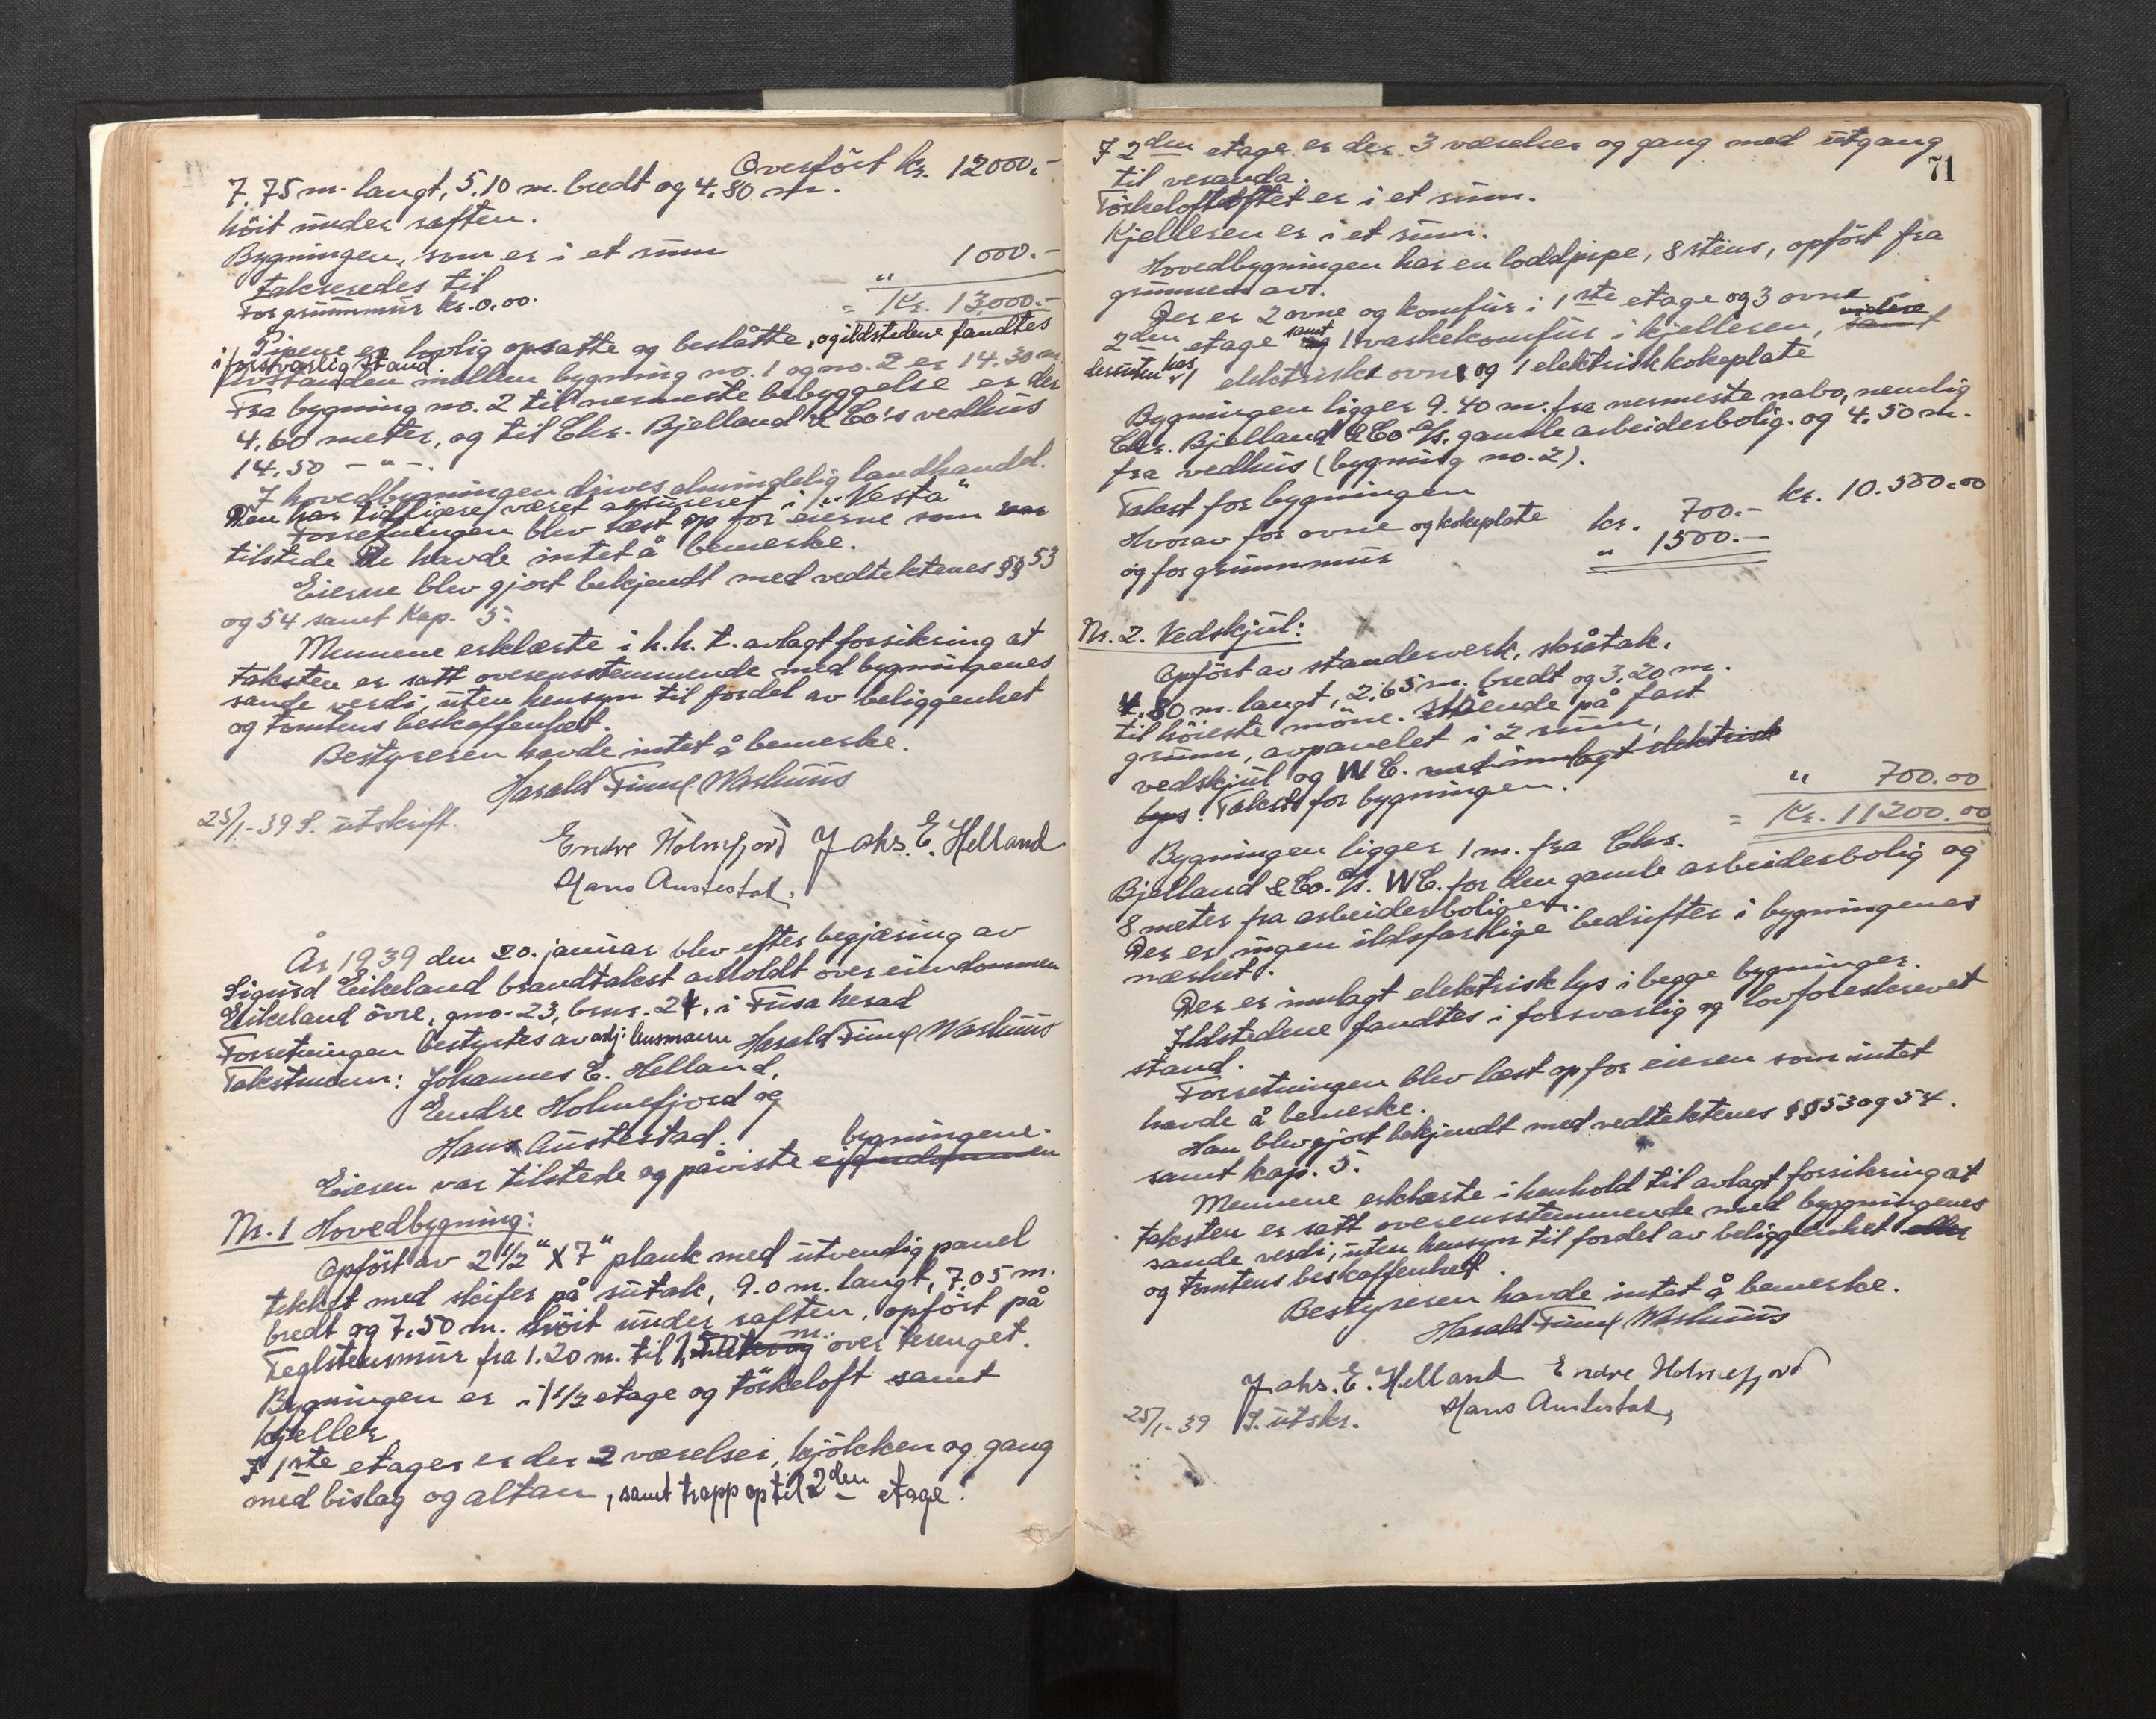 Overført kr. 12000.-
7.75 m. langt, 5.10 m. bredt og 4.80 m.
höit under raften.
Bygningen, som er i et rum
takseredes til " 1000.-
For grunnmur kr. 0.00. = Kr. 13000.-
Pipene er lovlig opsatte og beslåtte, og ildstedene fandtes
i forsvarlig stand.
Avstanden mellem bygning no. 1 og no. 2 er 14.30 m.
Fra bygning no. 2 til nermeste bebyggelse er der
4.60 meter, og til Chr. Bjelland & Co's vedhus
14.50 - " -.
I hovedbygningen drives almindelig landhandel.
Den har tidligere været assureret i "Vesta"
Forretningen blev læst op for eierne som var
tilstede De havde intet å bemerke.
Eierne blev gjort bekjendt med vedtektenes §§ 53
og 54 samt Kap. 5.
Mennene erklærte i h. h. t. avlagt forsikring at
taksten er satt overensstemmende med bygningenes
sande verdi, uten hensyn til fordel av beliggenhet
og tomtens beskaffenhet.
Bestyreren havde intet å bemerke.
Harald Finne Washuus
25/1-39 S. utskrift.
Endre Holmefjord Johs. E. Helland
Hans Austestad.
År 1939 den 20. januar blev efter begjæring av
Sigurd Eikeland brandtakst avholdt over eiendommen
Eikeland övre, gno. 23, brnr. 24, i Fusa herad
Forretningen bestyrtes av adj. lensmann Harald Finne Washuus
Takstmenn: Johannes E. Helland,
Endre Holmefjord og
Hans Austestad.
Eieren var tilstede og påviste eiendommen bygningene.
Nr. 1 Hovedbygning:
Opfört av 2 1/2" X 7" plank med utvendig panel
tekket med skifer på sutak, 9.0 m. langt, 7.05 m.
bredt og 7.50 m. höit under raften, opfört på
Teglstensmur fra 1.20 m. til m. over terenget.
Bygningen er i 1 1/2 etage og törkeloft samt
kjeller
I 1ste etager er der 2 værelser, kjökken og gang
med bislag og altan, samt trapp op til 2den etage.
71
I 2den etage er der 3 værelser og gang med utgang
til veranda.
Törkeloftloftet er i et rum.
Kjelleren er i et rum.
Hovedbygningen har en loddpipe, 8 stens, opfört fra
grunnen av.
Der er 2 ovne og komfur i 1ste etage og 3 ovne i
2den etage samt og 1 vaskekomfur i kjelleren, samt videre
desuten har 1 elektrisk ovn og 1 elektrisk kokeplate
Bygningen ligger 9.40 m. fra nermeste nabo, nemlig
Chr. Bjelland & Co A/S. gamle arbeiderbolig. og 4.50 m.
fra vedhus (bygning no. 2).
Takst for bygningen kr. 10.500.00
Hvorav for ovne og kokeplate kr. 700.-
og for grunnmur " 1500.-
Nr. 2. Vedskjul:
Opfört av standerverk, skråtak,
4.80 m. langt, 2.65 m. bredt og 3.20 m.
til höieste möne. Stående på fast
grunn, avpanelet i 2 rum,
vedskjul og W C. med innlagt elektrisk
lys. Takst for bygningen. " 700.00
= Kr. 11200.00
Bygningen ligger 1 m. fra Chr.
Bjelland & Co. A/S. WC. for den gamle arbeiderbolig og
8 meter fra arbeiderboligen.
Der er ingen ildsfarlige bedrifter i bygningenes
nærhet.
Der er innlagt elektrisk lys i begge bygninger.
Ildstedene fandtes i forsvarlig og lovforeskrevet
stand.
Forretningen blev læst op for eieren som intet
havde å bemerke.
Han blev gjort bekjendt med vedtektenes §§ 53 og 54.
samt kap. 5.
Mennene erklærte i henhold til avlagt forsikring at
taksten er satt overensstemmende med bygningenes
sande verdi, uten hensyn til fordel av beliggenhet eller
og tomtens beskaffenhet.
Bestyreren havde intet å bemerke.
Harald Finne Washuus
Johs. E. Helland Endre Holmefjord
25/1-39 S. utskr. Hans Austestad,